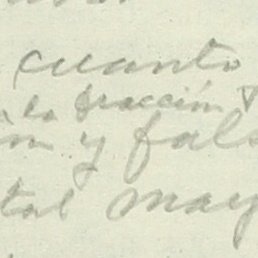 cuanto
la fracción
y fals
tal may